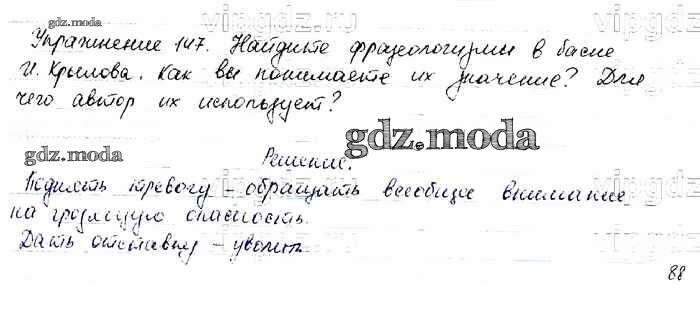 vipgdz
gdz.moda
Упражнение 147. Найдите фразеологизмы в басне
И. Крылова. Как вы понимаете их значение? Для
чего автор их использует?
gdz.moda
gdz.moda
Решение.
Поднять тревогу – обращать всеобщее внимание
на грозящую опасность.
gdz.moda
Дать отставку – уволить
88